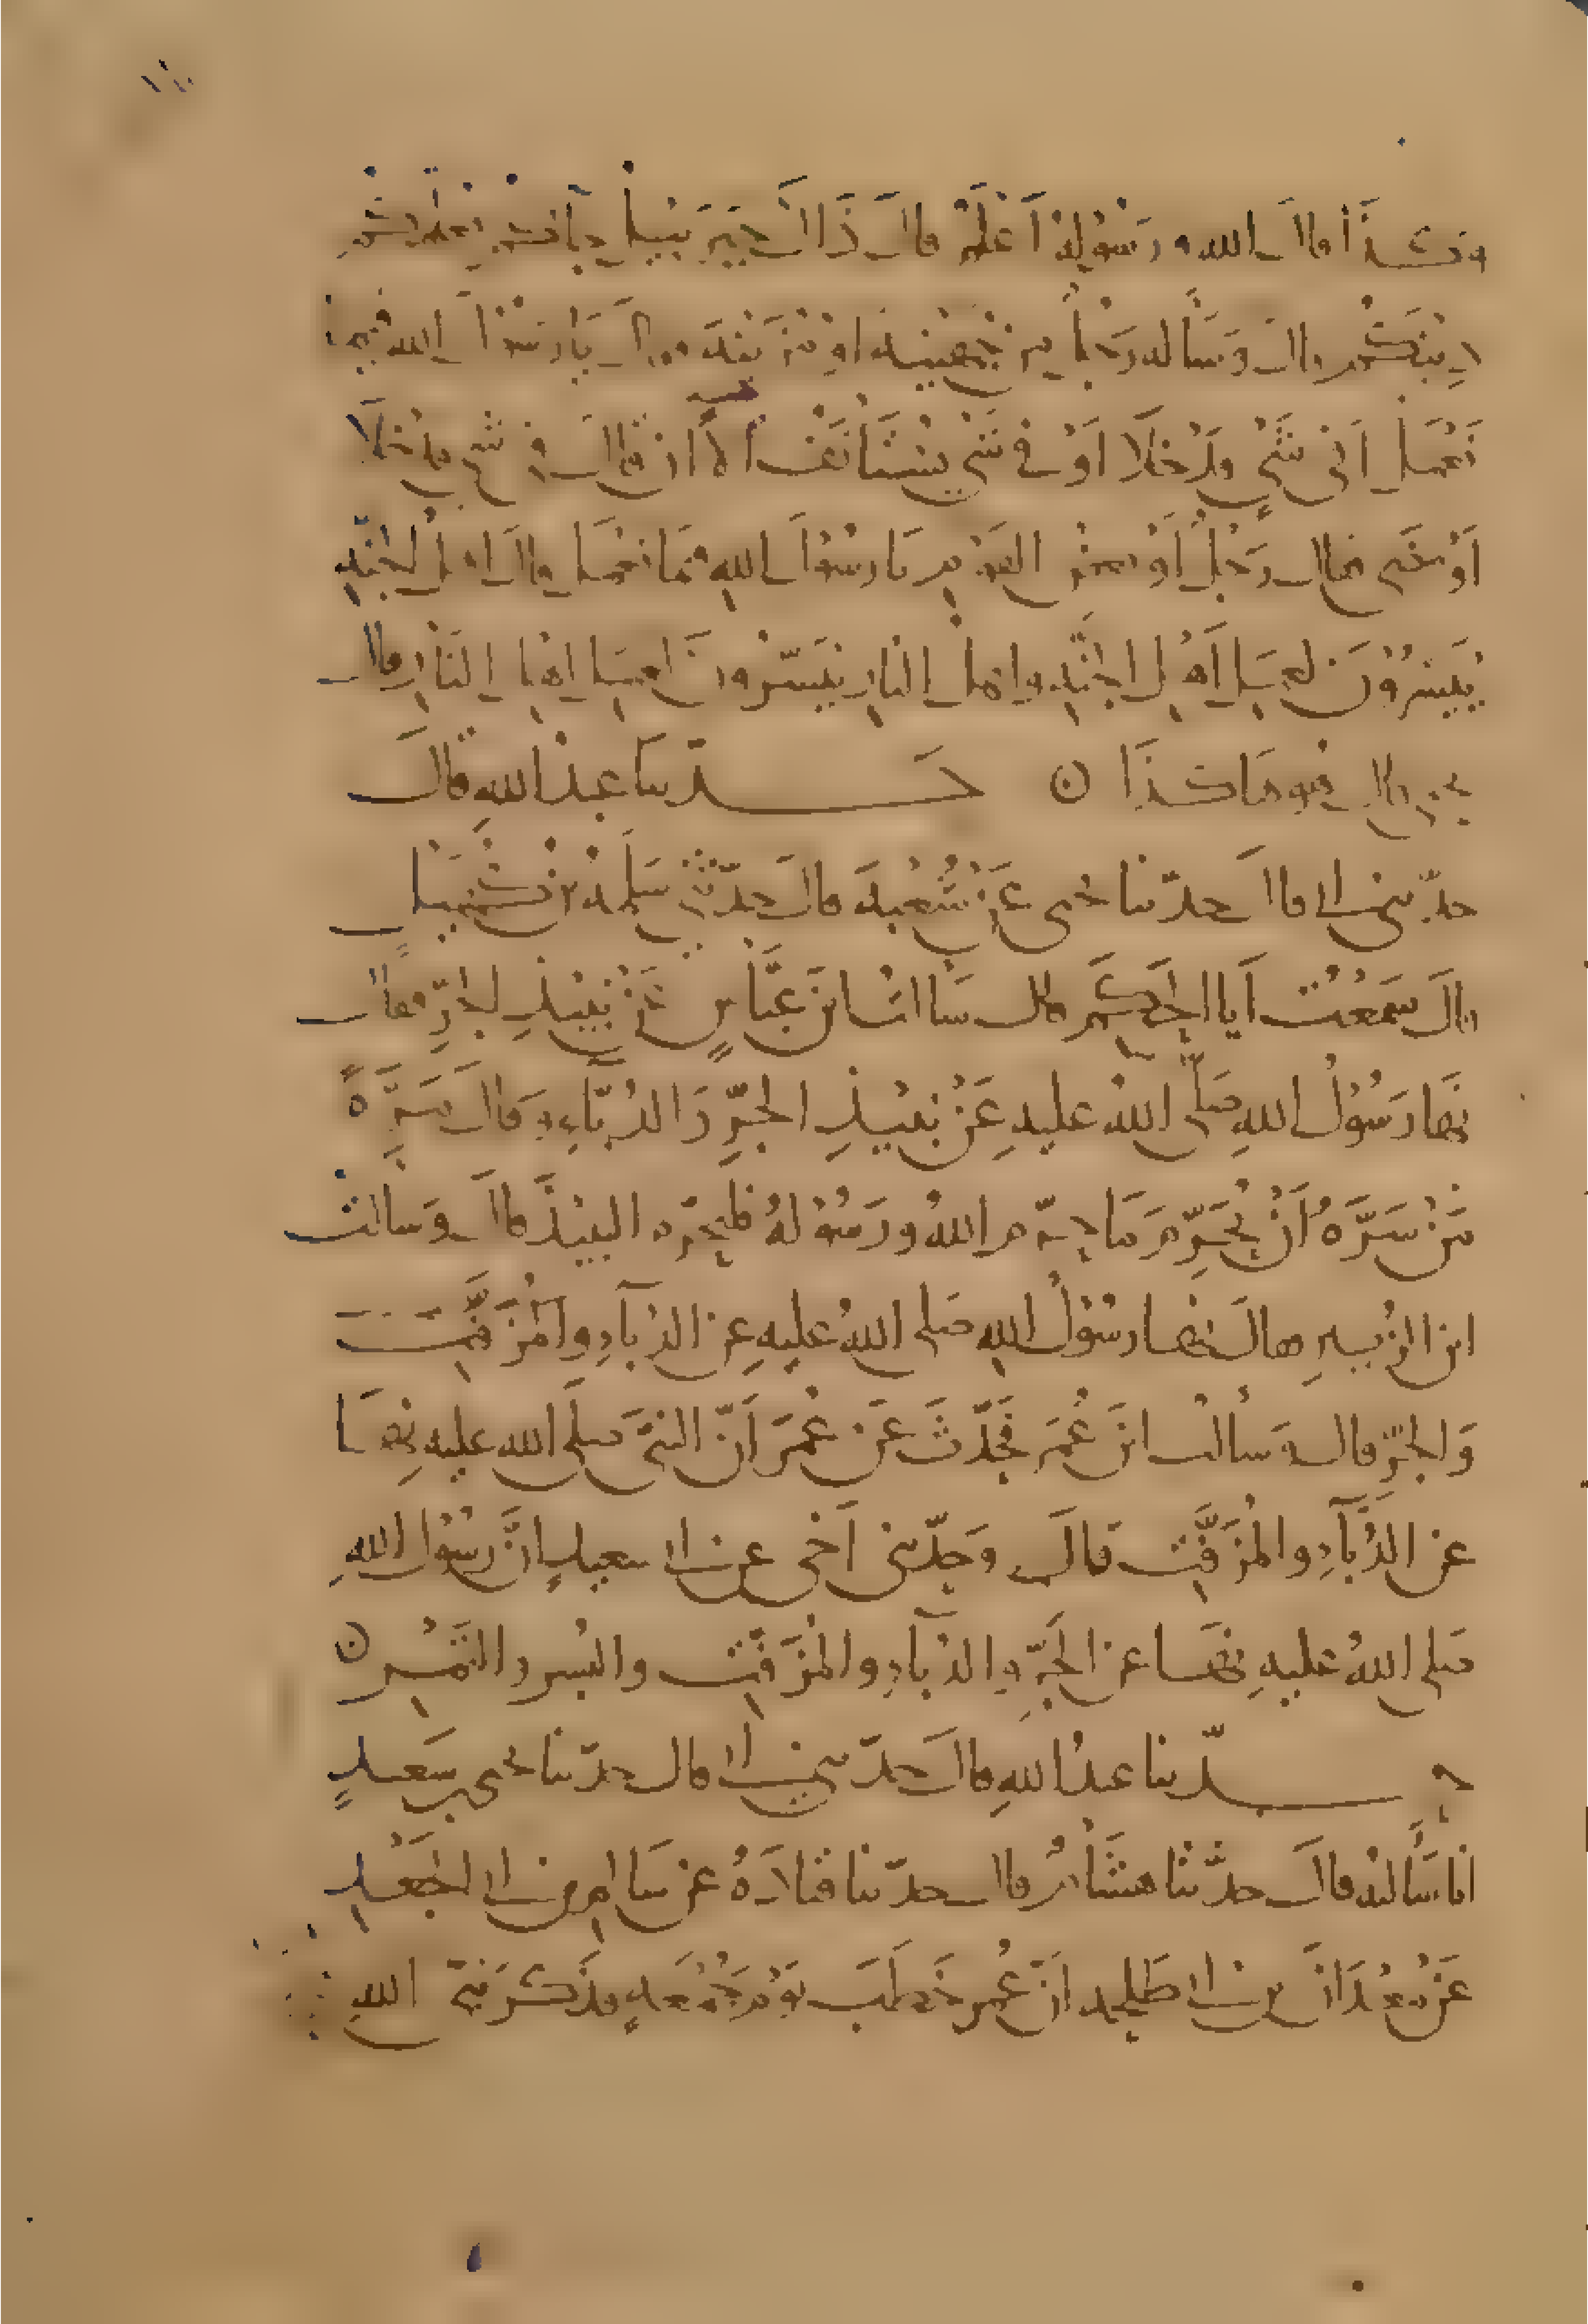 وكذا قال الله ورسوله اعلم قال ذاك جبريل جاكم يعلمكم
دينكم قال وسأله رجل من جهينة او مزينة فقال يا رسول الله فيما
نعمل افي شي قد خلا او في شي يستأنف الان قال في شي قد خلا
او مضى فقال رجل او بعض القوم يا رسول الله فما نعمل قال اهل الجنة
ييسرون لعمل اهل الجنة واهل النار ييسرون لعمل اهل النار قال
يحيى قال هو هكذا ن حدثنا عبد الله قال
حدثني ابي قال حدثنا يحيى عن شعبة قال حدثني سلمة بن كهيل
قال سمعت ابا الحكم قال سالت ابن عباس عن نبيذ الجر فقال
نها رسول الله صلى الله عليه عن نبيذ الجر والدباء وقال من سره
من سره ان يحرم ما حرم الله ورسوله فليحرم النبيذ قال وسالت
ابن الزبير فقال نها رسول الله صلى الله عليه عن الدباء والمزفت
والجر قال وسالت ابن عمر فحدث عن عمر ان النبي صلى الله عليه نها
عن الدباء والمزفت قال وحدثني اخي عن ابي سعيد ان رسول الله
صلى الله عليه نها عن الجر والدباء والمزفت والبسر والتمر ن
حدثنا عبد الله قال حدثني ابي قال حدثنا يحيى بن سعيد
انا سألته قال حدثنا هشام قال حدثنا قتادة عن سالم بن ابي الجعد
عن معدان بن ابي طلحة ان عمر خطب يوم جمعة فذكر نبي الله